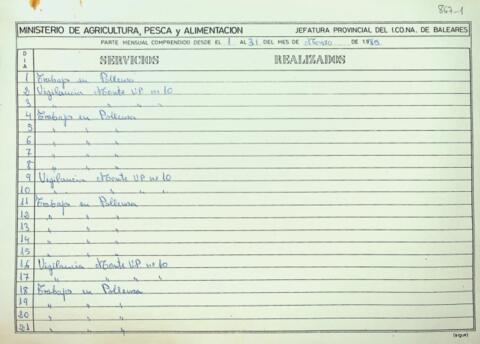 867-1
MINISTERIO DE AGRICULTURA, PESCA y ALIMENTACION JEFATURA PROVINCIAL DEL I.CO.NA. DE BALEARES
PARTE MENSUAL COMPRENDIDO DESDE EL 1 AL 31 DEL MES DE DE 19
DIA SERVICIOS REALIZADOS
1 Trabajo en Pollensa
2 Vigilancia Monte U.P. nº 10
3 " " " "
4 Trabajo en Pollensa
5 " " "
6 " " "
7 " " "
8 " " "
9 Vigilancia Monte U.P. nº 10
10 " " " "
11 Trabajo en Pollensa
12 " " "
13 " " "
14 " " "
15 " " "
16 Vigilancia Monte U.P. nº 10
17 " " " "
18 Trabajo en Pollensa
19 " " "
20 " " "
21 " " "
(sigue)